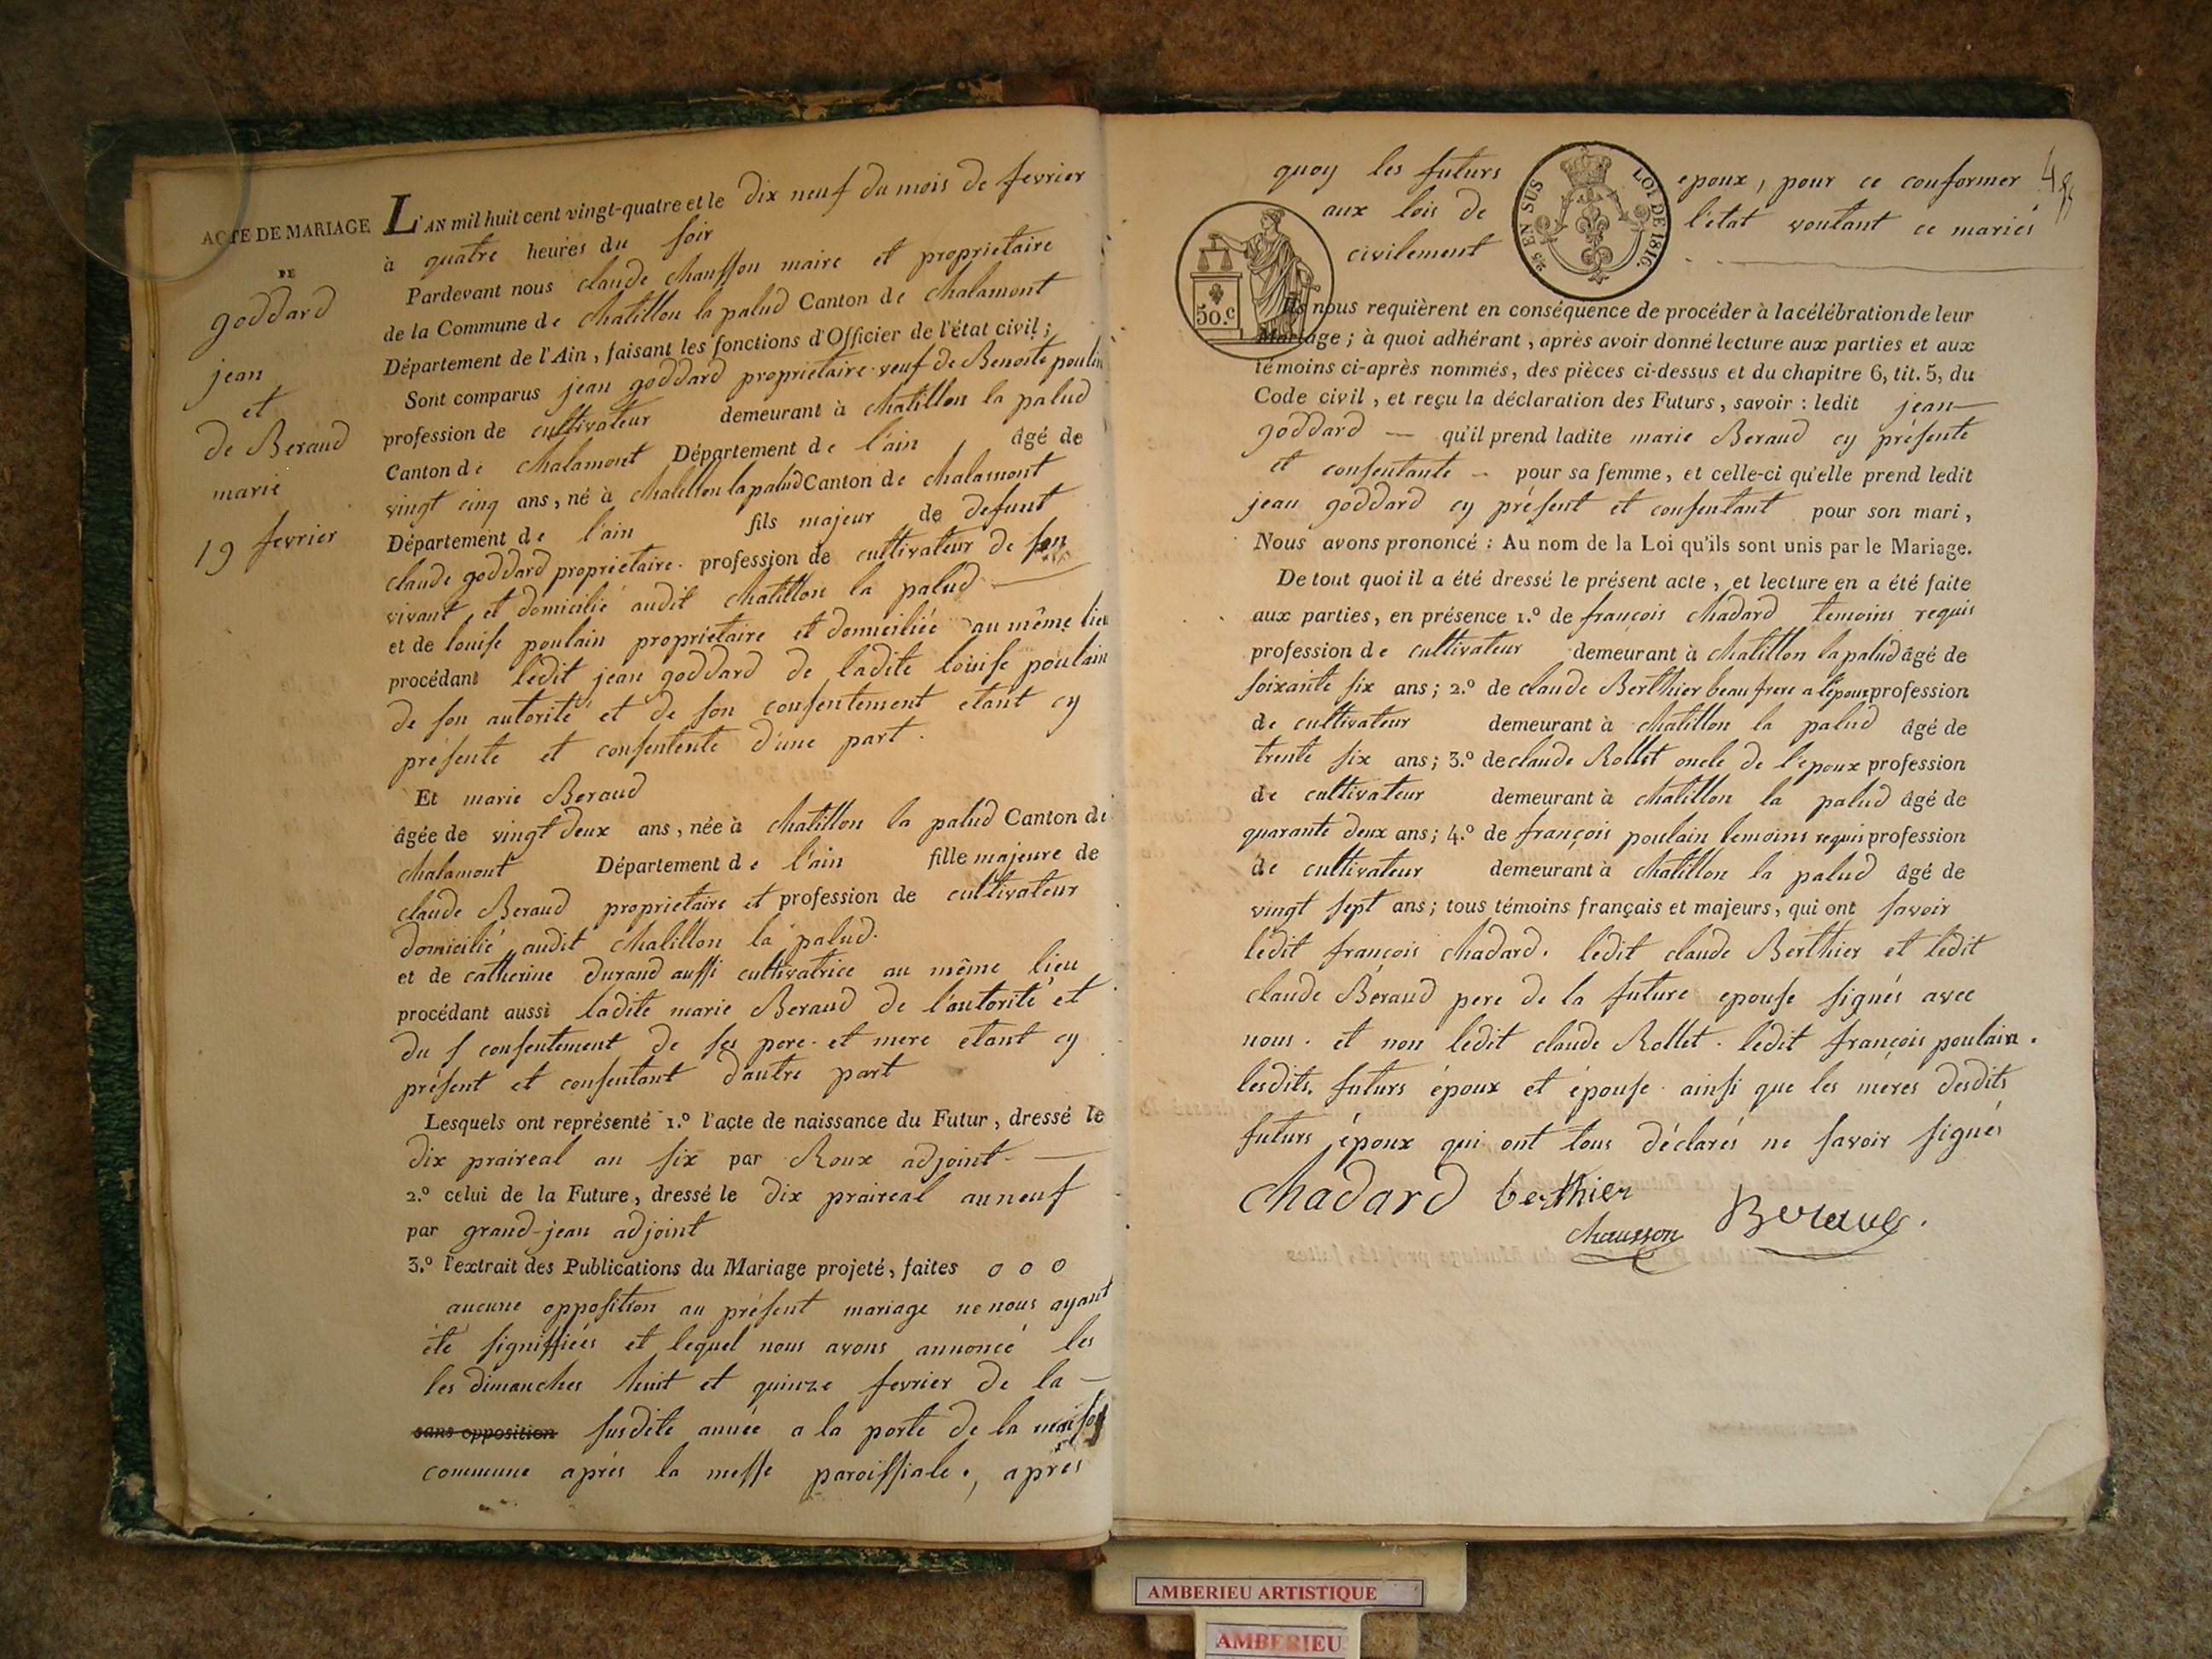 ACTE DE MARIAGE
DE
goddard
jean
et
de Beraud
marie
19 fevrier
L'AN mil huit cent vingt-quatre et le dix neuf du mois de fevrier
à quatre heures du soir
Pardevant nous claude chausson maire et proprietaire
de la Commune de chatillon la palud Canton de chalamont
Département de l'Ain, faisant les fonctions d'Officier de l'état civil;
Sont comparus jean goddard proprietaire veuf de Benoite poulin
profession de cultivateur demeurant à chatillon la palud
Canton de chalamont Département de l'ain âgé de
vingt cinq ans, né à chatillon la palud Canton de chalamont
Département de l'ain fils majeur de defunt
claude goddard proprietaire. profession de cultivateur de son
vivant et domicilié audit chatillon la palud
et de louise poulain proprietaire et domiciliée au même lieu
procédant ledit jean goddard de ladite louise poulain
de son autorité et de son consentement etant cy
présente et consentente d'une part.
Et marie Beraud
âgée de vingt deux ans, née à chatillon la palud Canton de
chalamont Département de l'ain fille majeure de
claude Beraud proprietaire et profession de cultivateur
domicilié audit chatillon la palud.
et de catherine durand aussi cultivatrice au même lieu
procédant aussi ladite marie Beraud de l'autorité et
du s consentement de ses pere et mere etant cy
présent et consentant d'autre part
Lesquels ont représenté 1.º l'acte de naissance du Futur, dressé le
dix praireal an six par Roux adjoint
2.º celui de la Future, dressé le dix praireal an neuf
par grand-jean adjoint
3.º l'extrait des Publications du Mariage projeté, faites o o o
aucune opposition au présent mariage ne nous ayant
été signiffiées et lequel nous avons annoncé les
les dimanches huit et quinze fevrier de la
sans opposition susdite année a la porte de la maison
commune aprés la messe paroissiale., aprés
quoy les futurs epoux, pour ce conformer
aux lois de l'état voulant ce mariés
civilement
25 EN SUS LOI DE 1816.
50.c
Ils nous requièrent en conséquence de procéder à la célébration de leur
Mariage; à quoi adhérant, après avoir donné lecture aux parties et aux
témoins ci-après nommés, des pièces ci-dessus et du chapitre 6, tit. 5, du
Code civil, et reçu la déclaration des Futurs, savoir: ledit jean
goddard — qu'il prend ladite marie Beraud cy présente
et consentante — pour sa femme, et celle-ci qu'elle prend ledit
jean goddard cy présent et consentant pour son mari,
Nous avons prononcé: Au nom de la Loi qu'ils sont unis par le Mariage.
De tout quoi il a été dressé le présent acte, et lecture en a été faite
aux parties, en présence 1.º de françois chadard temoins requis
profession de cultivateur demeurant à chatillon la palud âgé de
soixante six ans; 2.º de claude Berthier beau frere a l'epoux profession
de cultivateur demeurant à chatillon la palud âgé de
trente six ans; 3.º de claude Rollet oncle de l'epoux profession
de cultivateur demeurant à chatillon la palud âgé de
quarante deux ans; 4.º de françois poulain temoins requis profession
de cultivateur demeurant à chatillon la palud âgé de
vingt sept ans; tous témoins français et majeurs, qui ont savoir
ledit françois chadard. ledit claude Berthier et ledit
claude Béraud pere de la future epouse signés avec
nous. et non ledit claude Rollet. ledit françois poulain.
lesdits. futurs époux et épouse ainsi que les meres desdits
futurs époux qui ont tous déclarés ne savoir signés
chadard berthier
chausson Beraud.
AMBERIEU ARTISTIQUE
AMBERIEU